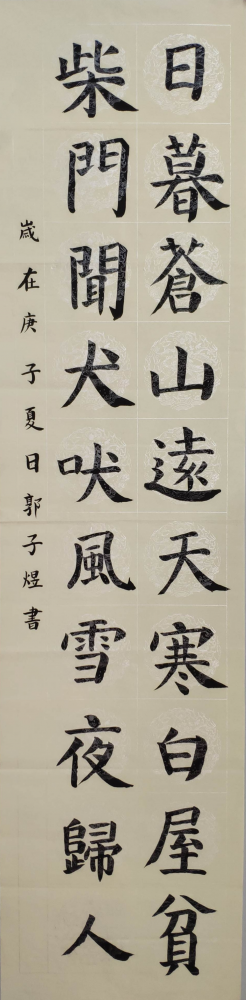 日暮蒼山遠天寒白屋貧
柴門聞犬吠風雪夜歸人
歲在庚子夏日郭子煜書